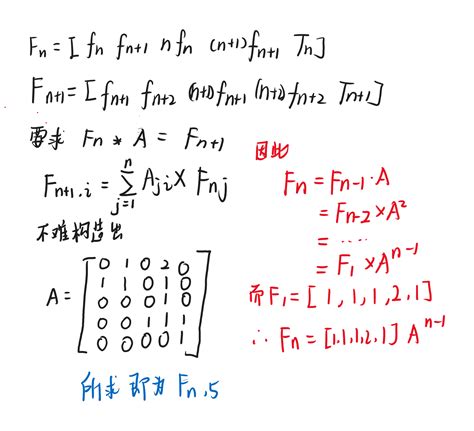 Fn = [ fn fn+1 nfn (n+1)fn+1 Tn]
Fn+1 = [fn+1 fn+2 (n+1)fn+1 (n+2)fn+2 Tn+1]
要求 Fn * A = Fn+1
Fn+1,i = n∑j=1 Aji × Fnj
不难构造出
A = [
0 1 0 2 0
1 1 0 1 0
0 0 0 1 0
0 0 1 1 1
0 0 0 0 1
]
所求即为 Fn,5
因此
Fn = Fn-1·A
= Fn-2×A²
= ....
= F1 ×A^n-1
而F1 = [1,1,1,2,1]
∴ Fn = [1,1,1,2,1] A^n-1